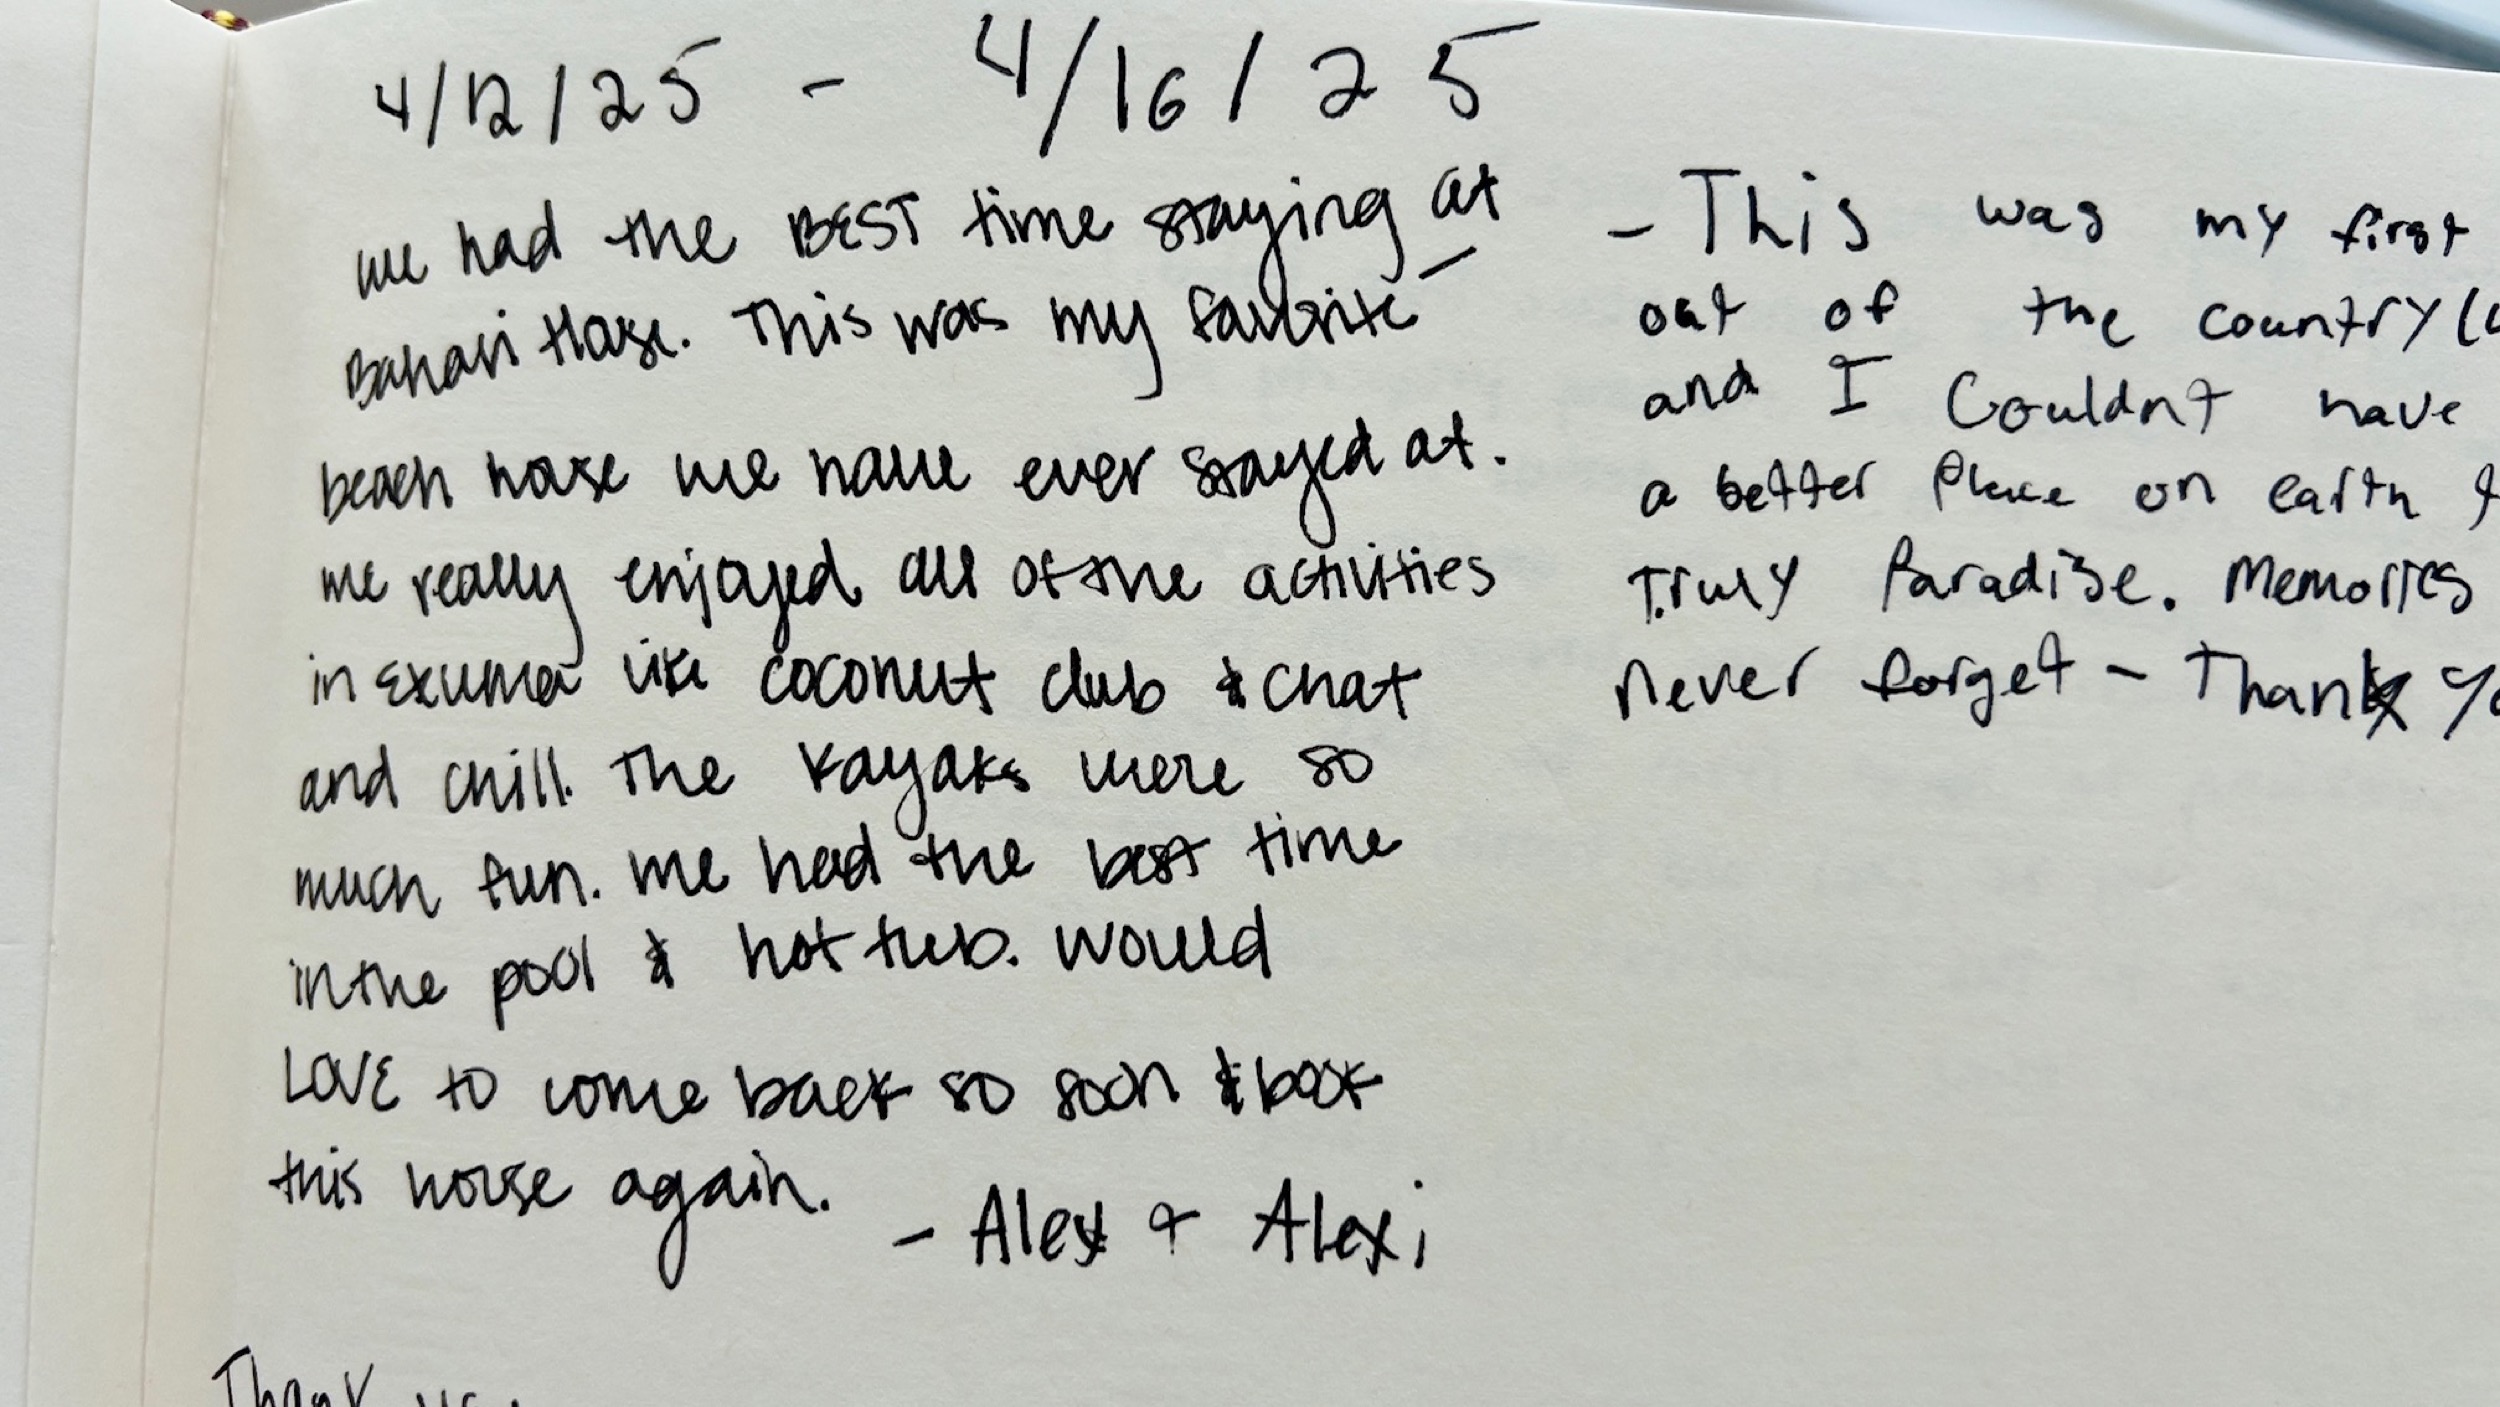 4/12/25 - 4/16/25
we had the BEST time staying at
Bahari House. This was my favorite
beach house we have ever stayed at.
we really enjoyed all of the activities
in Exuma like coconut club & chat
and chill. The kayaks were so
much fun. we had the best time
in the pool & hot tub. would
LOVE to come back so soon & book
this house again.
- Alex + Alexi
Thank
- This was my first
out of the country (
and I Couldnt have
a better Place on earth
Truly Paradise. Memories
never forget - Thank